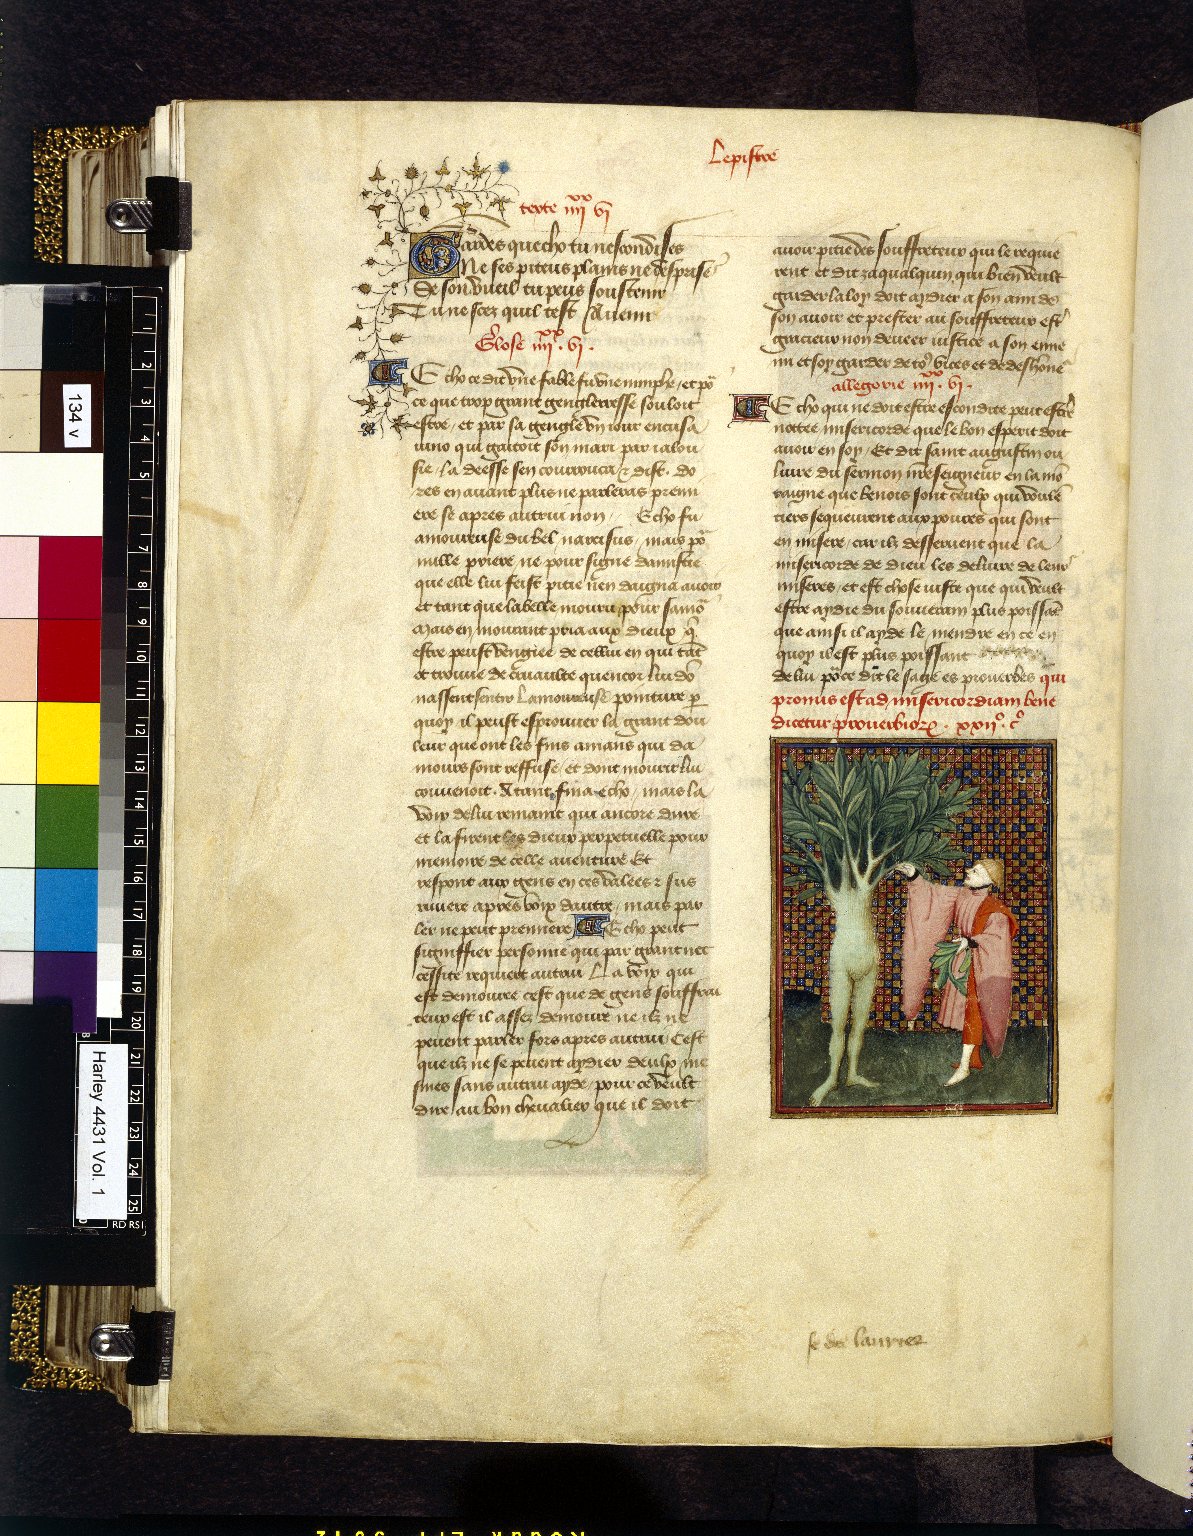 Lepistre
texte iiii xx vi
Gardes quecho tu nescondises
Ne ses piteus plains ne desprises
Se son vueil tu peus soustenir
Tu ne scez quil test Avenir
Glose iiii xx . vi .
Echo ce dit vne fable fu vne nimphe / et po^r
ce que trop grant gengleresse souloit
estre / et par sa gengle vn iour encusa
iuno qui gaitoit son mari par ialou
sie / la deesse sen courrouca & dist . do
res en auant plus ne parleras premi
ere se apres autrui non / Echo fu
amoureuse du bel narcisus / mais po^r
nulle priere ne pour signe damistie
que elle lui feist pitie nen daigna auoir
et tant que la belle mouru pour samo^r
Mais en mourant pria aux dieux q^l
estre peust vengiee de cellui en qui tat
ot trouue de cruaulte quencor lui do
nassent sentir lamoureuse pointure p
quoy il peust esprouuer la grant dou
leur que ont les fins amans qui da
mours sont reffuse / et dont mourir lui
couuenoit . Atant fina echo / mais la
voix de lui remaint qui ancore dure
et la firent les dieux perpetuelle pour
memoire de celle auenture Et
respont aux gens en ces valees & sus
riuiere apres voix dautre / mais par
ler ne peut premiere Echo peut
signiffier personne qui par grant nec
cessite requiert autrui La voix qui
est demouree cest que de gens souffrai
teux est il assez demoure ne ilz ne
peuent parler fors apres autrui / Cest
que ilz ne se peuent aydier deulx me
smes sans autrui ayde / pour ce veult
dire au bon cheualier que il doit
auoir pitie des souffreteux qui le requie
rent et dit zaqualquin qui bien veult
garder la loy doit aydier a son ami de
son auoir et prester au souffreteux est^r
gracieux non deueer iustice a son enne
mi et soy garder de to^s vices et de deshone^r
allegorie iiii xx . vi .
Echo qui ne doit estre escondite peut estre
nottee misericorde que le bon esperit doit
auoir en soy / Et dit saint augustin ou
liure du sermon nre seigneur en la mo
taigne que benois sont ceulx qui voule
tiers sequeurent aux poures qui sont
en misere / car ilz desseruent que la
misericorde de dieu les deliure de leurs
miseres / et est chose iuste que qui veult
estre aydie du souuerain plus poissat
que ainsi il ayde le mendre en ce en
quoy il est plus poissant
de lui po^r ce dit le sage es prouerbes qui
pronus est ad misericordiam bene
dicetur prouerbiorz . xxii^o . c^o
se de laurier
134 v
Harley 4431 Vol. 1
1
2
3
4
5
6
7
8
9
10
11
12
13
14
15
16
17
18
19
20
21
22
23
24
25
RD RSI